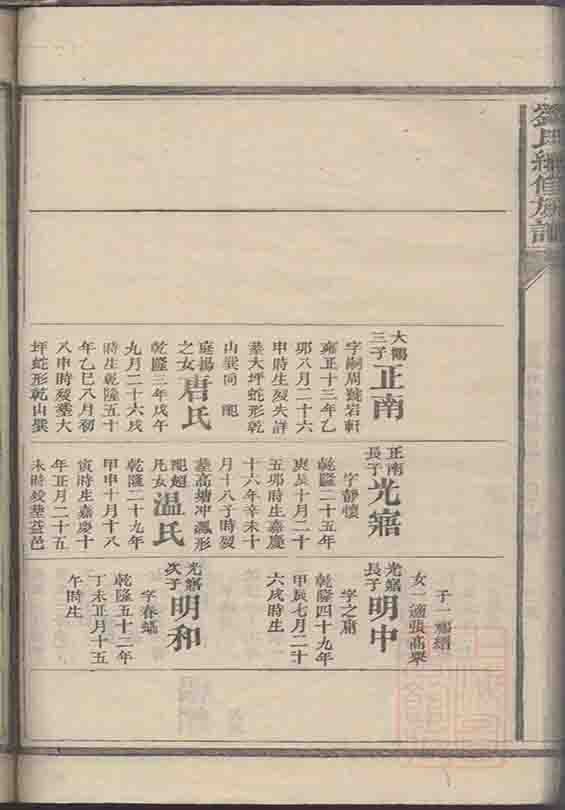 劉氏續修族譜
大賜
三子
正南
字嗣周號岩軒
雍正十三年乙
卯八月二十六
申時生歿失詳
塟大坪蛇形乾
山巽向 配
庭揚
之女
唐氏
乾隆三年戊午
九月二十六戌
時生乾隆五十
年乙巳八月初
八申時歿塟大
坪蛇形乾山巽
正南
長子
光
字靜懷
乾隆二十五年
庚辰十月二十
五卯時生嘉慶
十六年辛未十
月十八子時歿
塟高塘冲瓢形
配超
凡女
温氏
乾隆二十九年
甲申十月十八
寅時生嘉慶十
年正月二十五
未時歿塟益邑
子一
女一適張高舉
光
長子
明中
字之庸
乾隆四十九年
甲辰七月二十
六戌時生
光
次子
明和
字春
乾隆五十二年
丁未正月十五
午時生